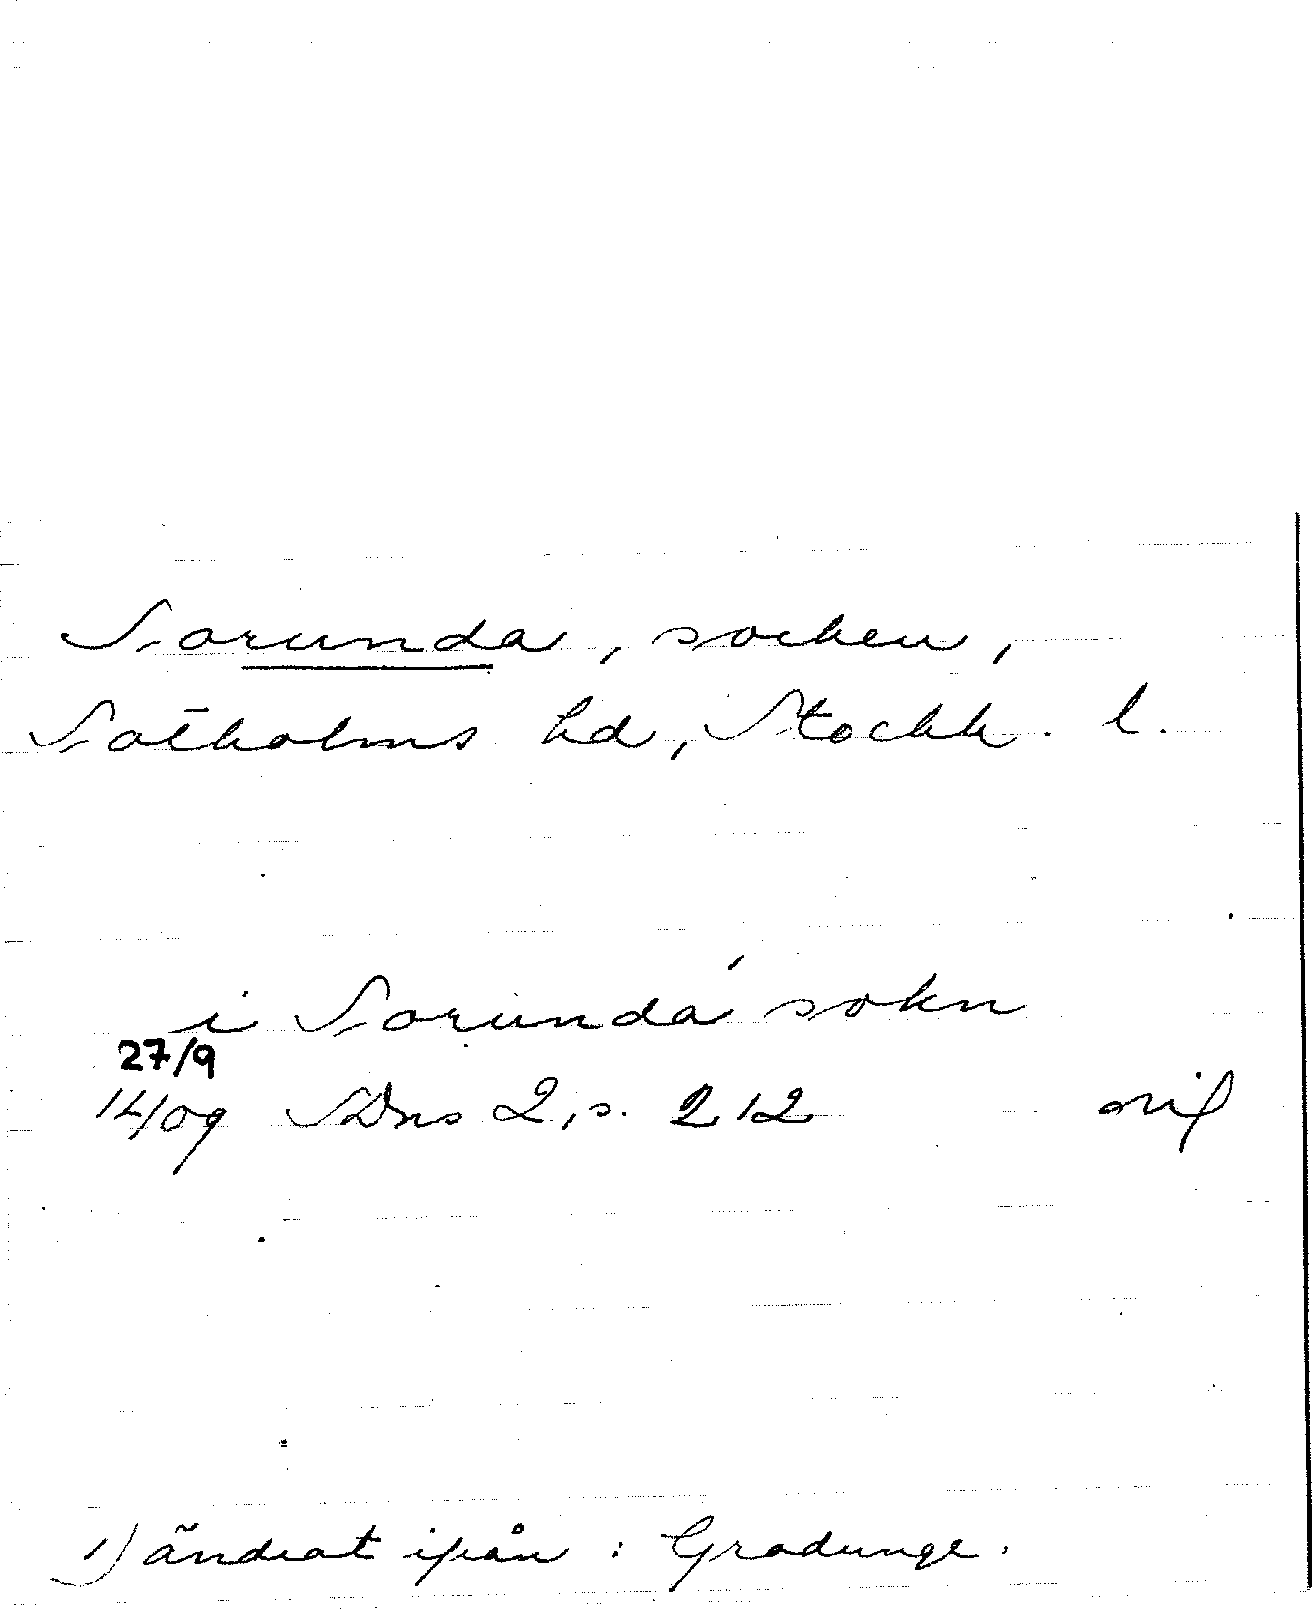 Sorunda, socken,
Sotholms hd, Stockh. l.
i Sorunda' sokn
27/9
14/09 SDns 2, s. 212
1) ändrat ifrån: Gradunge.